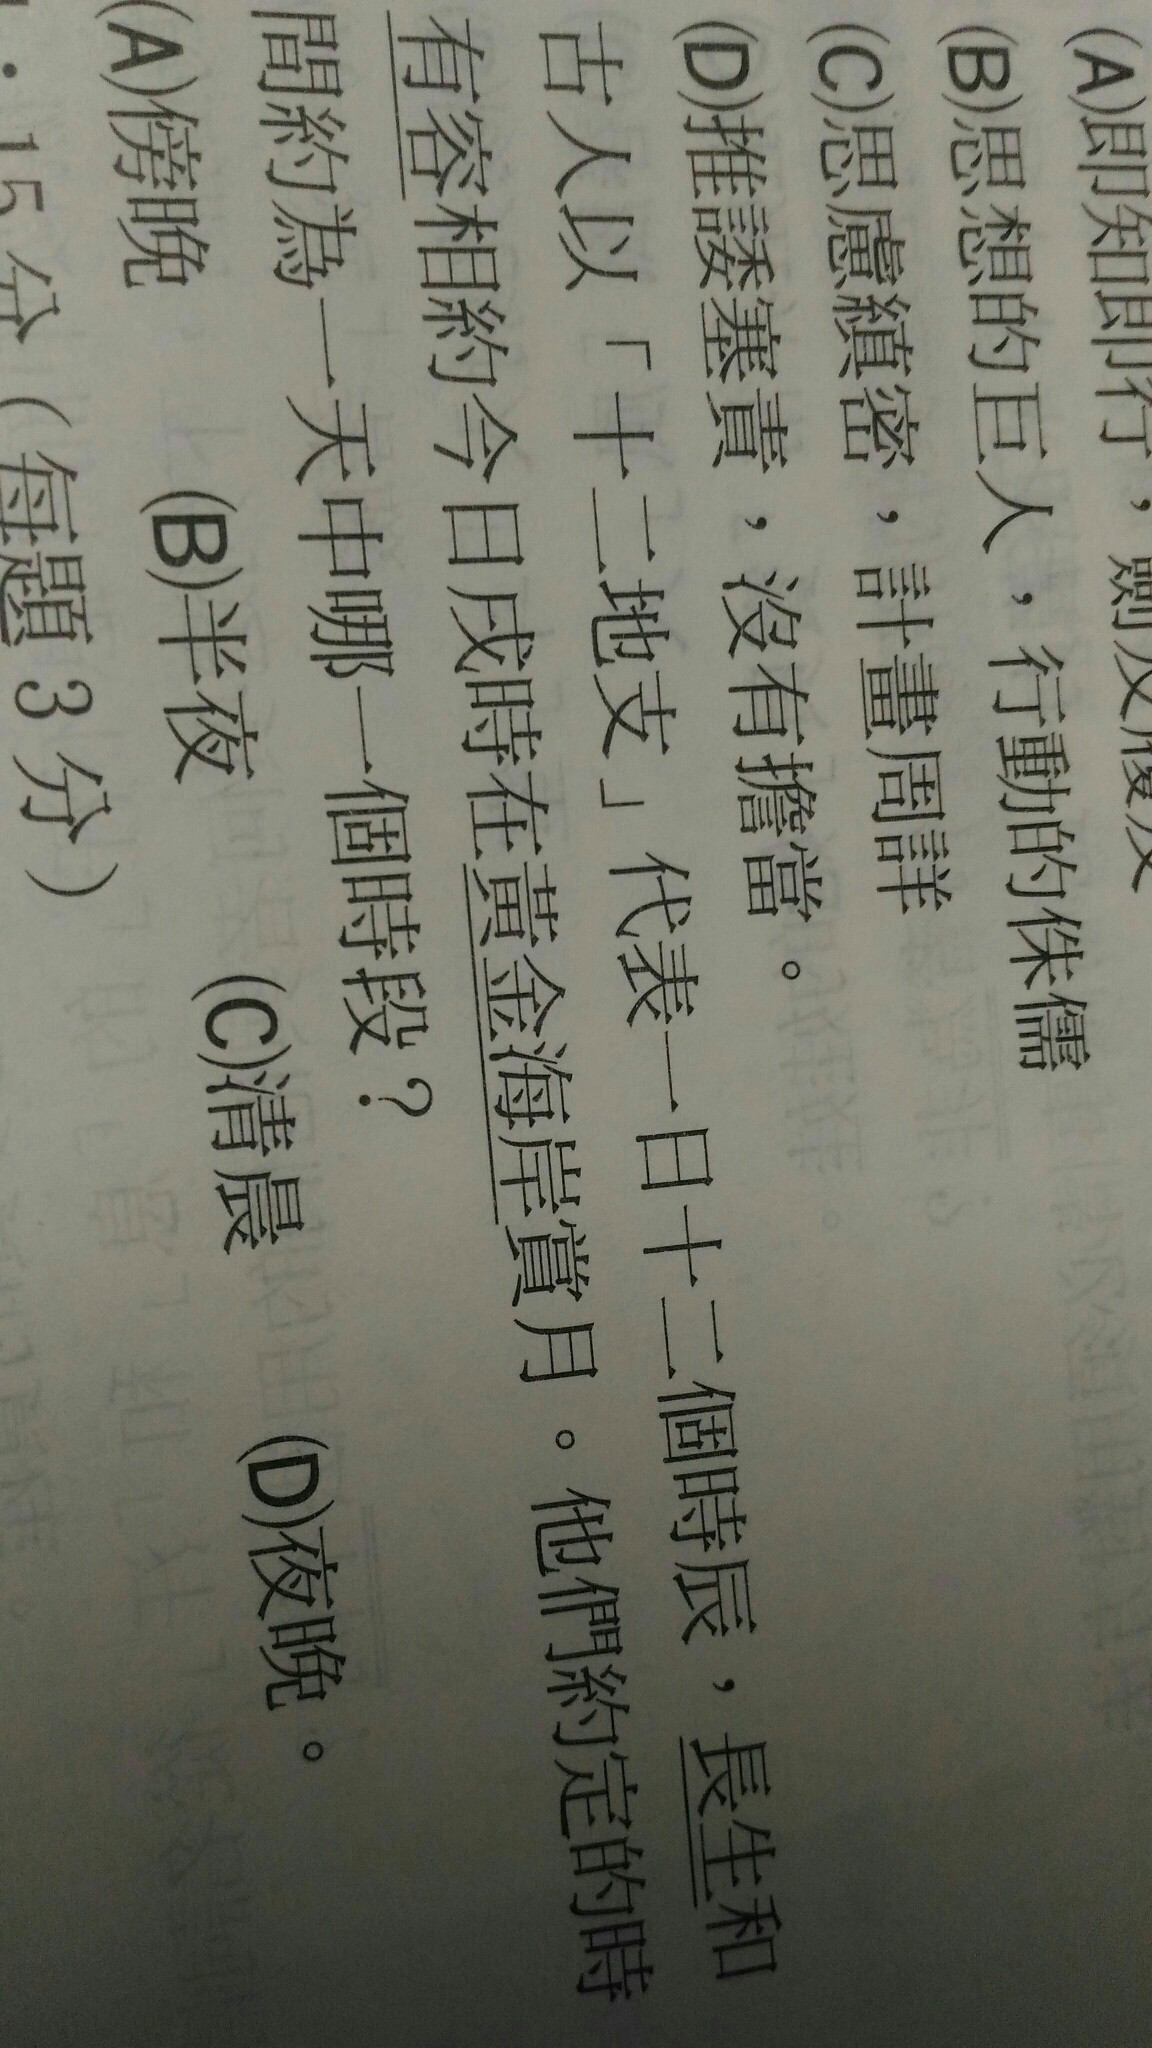 (A)即知即行，劍及履及
(B)思想的巨人，行動的侏儒
(C)思慮縝密，計畫周詳
(D)推諉塞責，沒有擔當。
古人以「十二地支」代表一日十二個時辰，長生和
有容相約今日戌時在黃金海岸賞月。他們約定的時
間約為一天中哪一個時段？
(A)傍晚 (B)半夜 (C)清晨 (D)夜晚。
15分（每題3分）